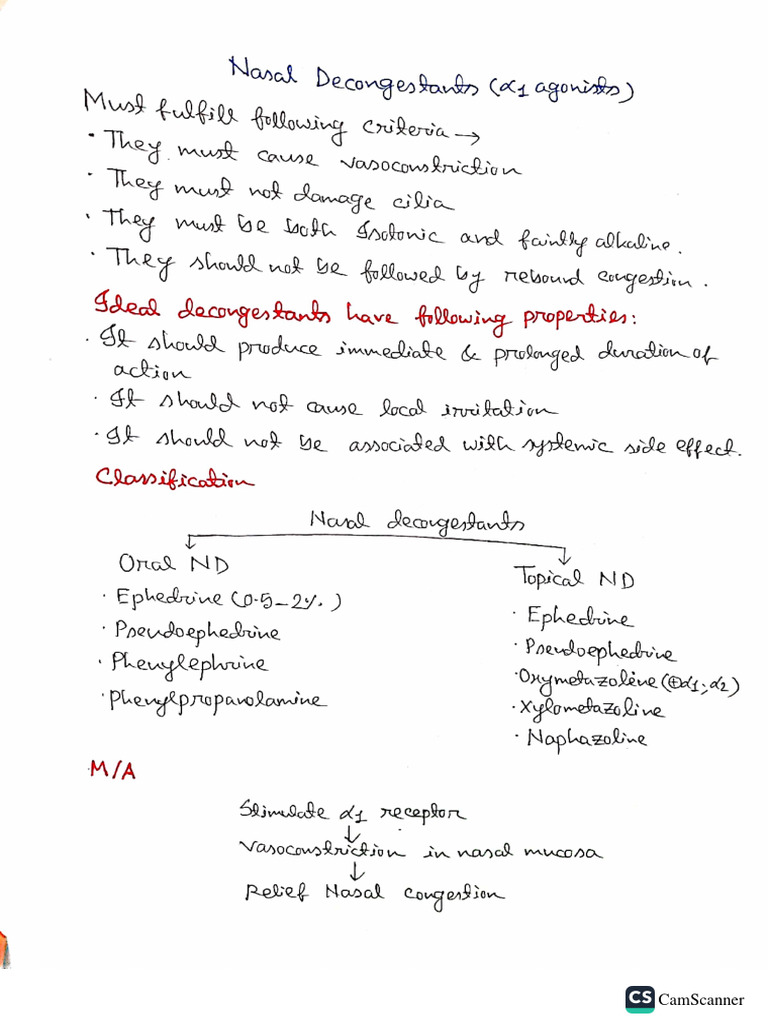 Nasal Decongestants (α1 agonists)
Must fulfill following criteria →
· They must cause vasoconstriction
· They must not damage cilia
· They must be both Isotonic and faintly alkaline.
· They should not be followed by rebound congestion.
Ideal decongestants have following properties:
· It should produce immediate & prolonged duration of
action
· It should not cause local irritation
· It should not be associated with systemic side effect.
Classification
Nasal decongestants
Oral ND
· Ephedrine (0.5-2%.)
· Pseudoephedrine
· Phenylephrine
· Phenylpropanolamine
Topical ND
· Ephedrine
· Pseudoephedrine
· Oxymetazoline (⊕α1; α2)
· Xylometazoline
· Naphazoline
M/A
Stimulate α1 receptor
↓
Vasoconstriction in nasal mucosa
↓
Relief Nasal congestion
CS CamScanner